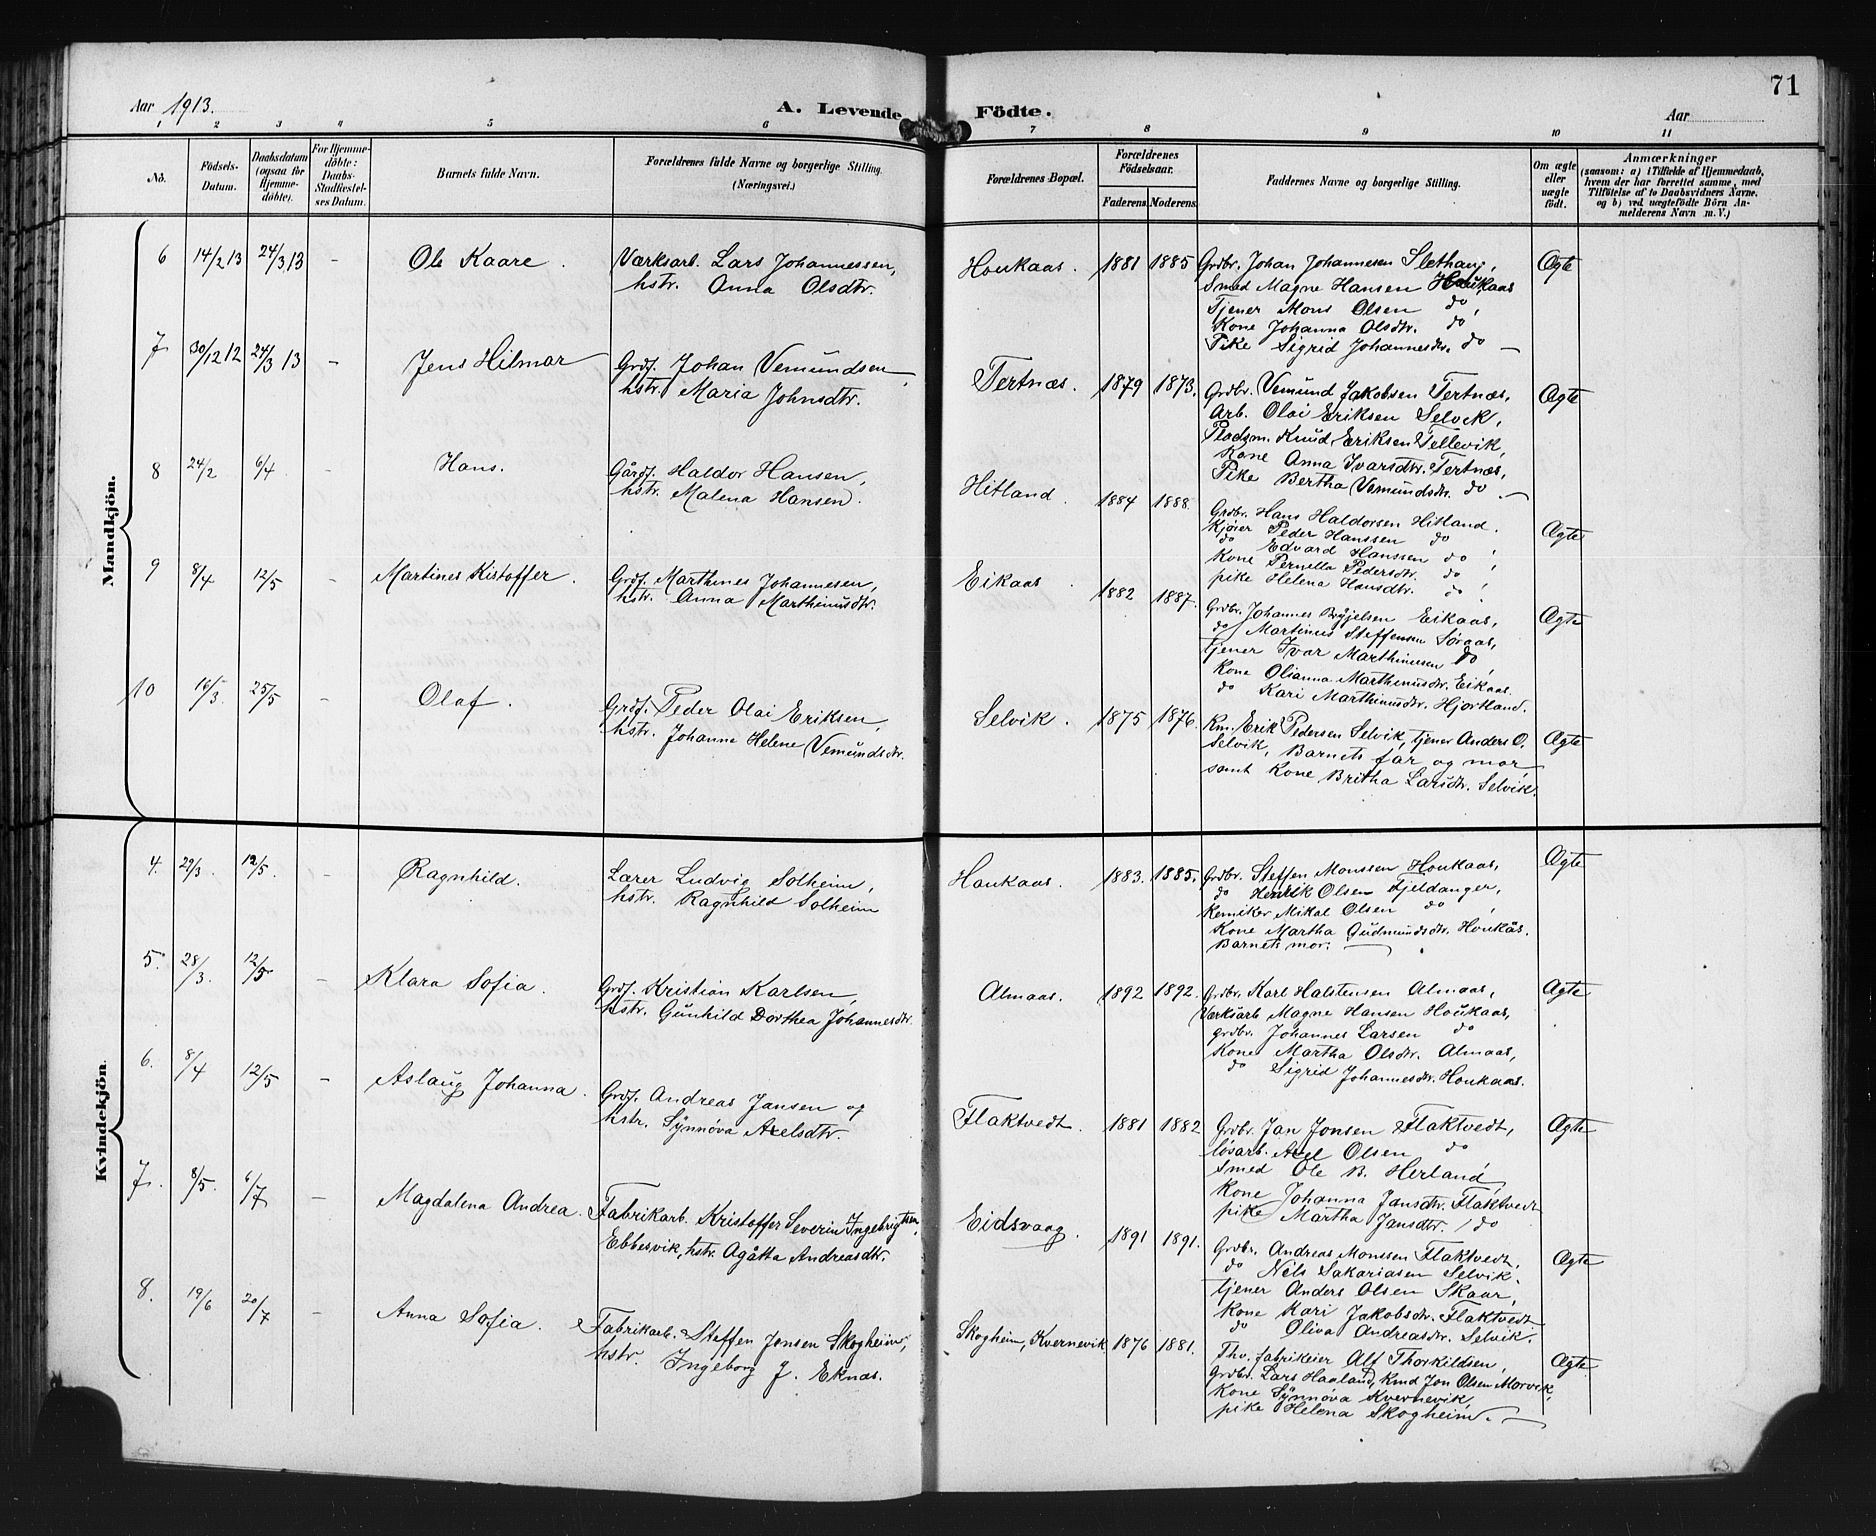 71
Aar 1913.
A. Levende Födte.
Aar
1 2 3 4 5 6 7 8 9 10 11
No.
Födsels-Datum.
Daabsdatum (ogsaa for Hjemmedöbte).
For Hjemmedöbte: Daabs-Stadfæstelses Datum.
Barnets fulde Navn.
Forældrenes fulde Navne og borgerlige Stilling. (Næringsvei.)
Forældrenes Bopæl.
Forældrenes Födselsaar.
Faderens. Moderens.
Faddernes Navne og borgerlige Stilling.
Om ægte eller uægte födt.
Anmærkninger
(saasom: a) i Tilfælde af Hjemmedaab,
hvem der har forrettet samme, med
Tilföielse af to Daabsvidners Navne.
og b) ved uægtefödte Börn Anmelderens Navn m. V.)
Mandkjön.
6 14/2 13 24/3 13 - Ole Kaare.
Værksarb. Lars Johannessen,
hstr. Anna Olsdtr.
Houkaas. 1881 1885
Grdbr. Johan Johannesen Slethaug,
Smed Magne Hansen Houkaas
Tjener Mons Olsen do,
Kone Johanna Olsdtr. do
Pike Sigrid Johannesdtr. do —
Ægte
7 30/12 12 24/3 13 - Jens Hilmar
Grdf. Johan Vemundsen,
hstr. Maria Johnsdtr.
Tertnæs. 1879 1873.
Grdbr. Vemund Jakobsen Tertnæs,
Arb. Olai Eriksen Selvik,
Pladsm. Knud Eriksen Tellevik,
Kone Anna Ivarsdtr. Tertnæs,
Pike Bertha Vemundsdtr. do. —
Ægte
8 24/2 6/4 - Hans.
Gårdf. Haldor Hansen,
hstr. Malena Hansen.
Hitland. 1884 1888.
Grdbr. Hans Haldorsen Hitland.
Kjøier Peder Hanssen do
do Edvard Hanssen do,
Kone Pernella Pedersdtr. do
pike Helena Hansdtr. do.
Ægte
9 8/4 12/5 - Martines Kistoffer.
Grdf. Marthines Johannesen,
hstr. Anna Marthinusdtr.
Eikaas 1882 1887.
Grdbr. Johannes Eikaas,
do Martinus Steffensen Søraas,
tjener Ivar Marthinusen do,
Kone Olianna Marthinusdtr. Eikaas.
do Kari Marthinusdtr. Hjortland.
Ægte
10 16/3 25/5 - Olaf.
Grdf. Peder Olai Eriksen,
hstr. Johanne Helene Vemundsdtr.
Selvik. 1875 1876.
Km. Erik Pedersen Selvik, tjener Anders O.
Selvik, Barnets far og mor
samt Kone Britha Larsdtr. Selvik.
Ægte
Kvindekjön.
4. 29/3 12/5. - Ragnhild.
Lærer Ludvig Solheim,
hstr. Ragnhild Solheim
Haukaas. 1883. 1885.
Grdbr. Steffen Monssen Houkaas,
do Henrik Olsen Fjeldanger,
Kemiker Mikal Olsen do,
Kone Martha Gudmundsdtr. Houkås.
Barnets mor. —
Ægte
5. 28/3. 12/5. - Klara Sofia.
Grdf. Kristian Karlsen,
hstr. Gunhild Dorthea Johannesdtr.
Almaas. 1892 1892.
Grdbr. Karl Halstensen Almaas,
Værksarb Magne Hansen Houkaas,
grdbr. Johannes Larsen do
Kone Martha Olsdtr. Almaas,
do Sigrid Johannesdtr. Houkaas.
Ægte
6. 8/4 12/5 - Aslaug Johanna.
Grdf. Andreas Jansen og
hstr. Synnöva Axelsdtr.
Flaktvedt. 1881 1882
Grdbr. Jan Jonsen Flaktvedt,
løsarb. Axel Olsen do
Smed Ole B. Herland,
Kone Johanna Jansdtr. Flaktvedt
pike Martha Jansdtr. do
Ægte
7. 8/5. 6/7 - Magdalena Andrea.
Fabrikarb. Kristoffer Severin Ingebrigtsen,
Ebbesvik, hstr. Agåtha Andreasdtr.
Eidsvaag. 1891 1891.
Grdbr. Andreas Monssen Flaktvedt,
do Nils Sakariasen Selvik.
tjener Anders Olsen Skaar,
Kone Kari Jakobsdtr. Flaktvedt
do Oliva Andreasdtr. Selvik.
Ægte
8. 19/6 20/7 - Anna Sofia.
Fabrikarb. Steffen Jonsen Skogheim,
hstr. Ingeborg J. Eknæs.
Skogheim, Kvernevik. 1876 1881.
Thv. fabrikeier Alf Thorkildsen,
Grdbr. Lars Haaland, Kmd Jon Olsen Morvik,
Kone Synnöva Kvernevik,
pike Helena Skogheim. —
Ægte